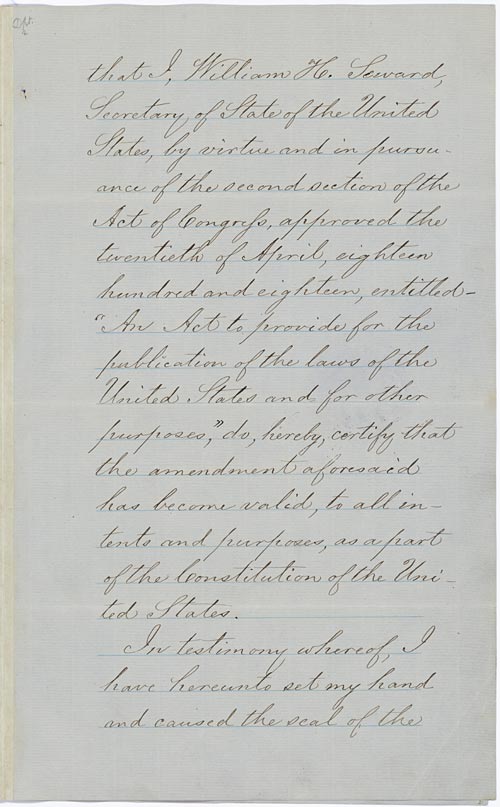 that I, William H. Seward,
Secretary of State of the United
States, by virtue and in pursu-
ance of the second section of the
Act of Congress, approved the
twentieth of April, eighteen
hundred and eighteen, entitled
"An Act to provide for the
publication of the laws of the
United States and for other
purposes," do, hereby, certify that
the amendment aforesaid
has become valid, to all in-
tents and purposes, as a part
of the Constitution of the Uni-
ted States.
In testimony whereof, I
have hereunto set my hand
and caused the seal of the